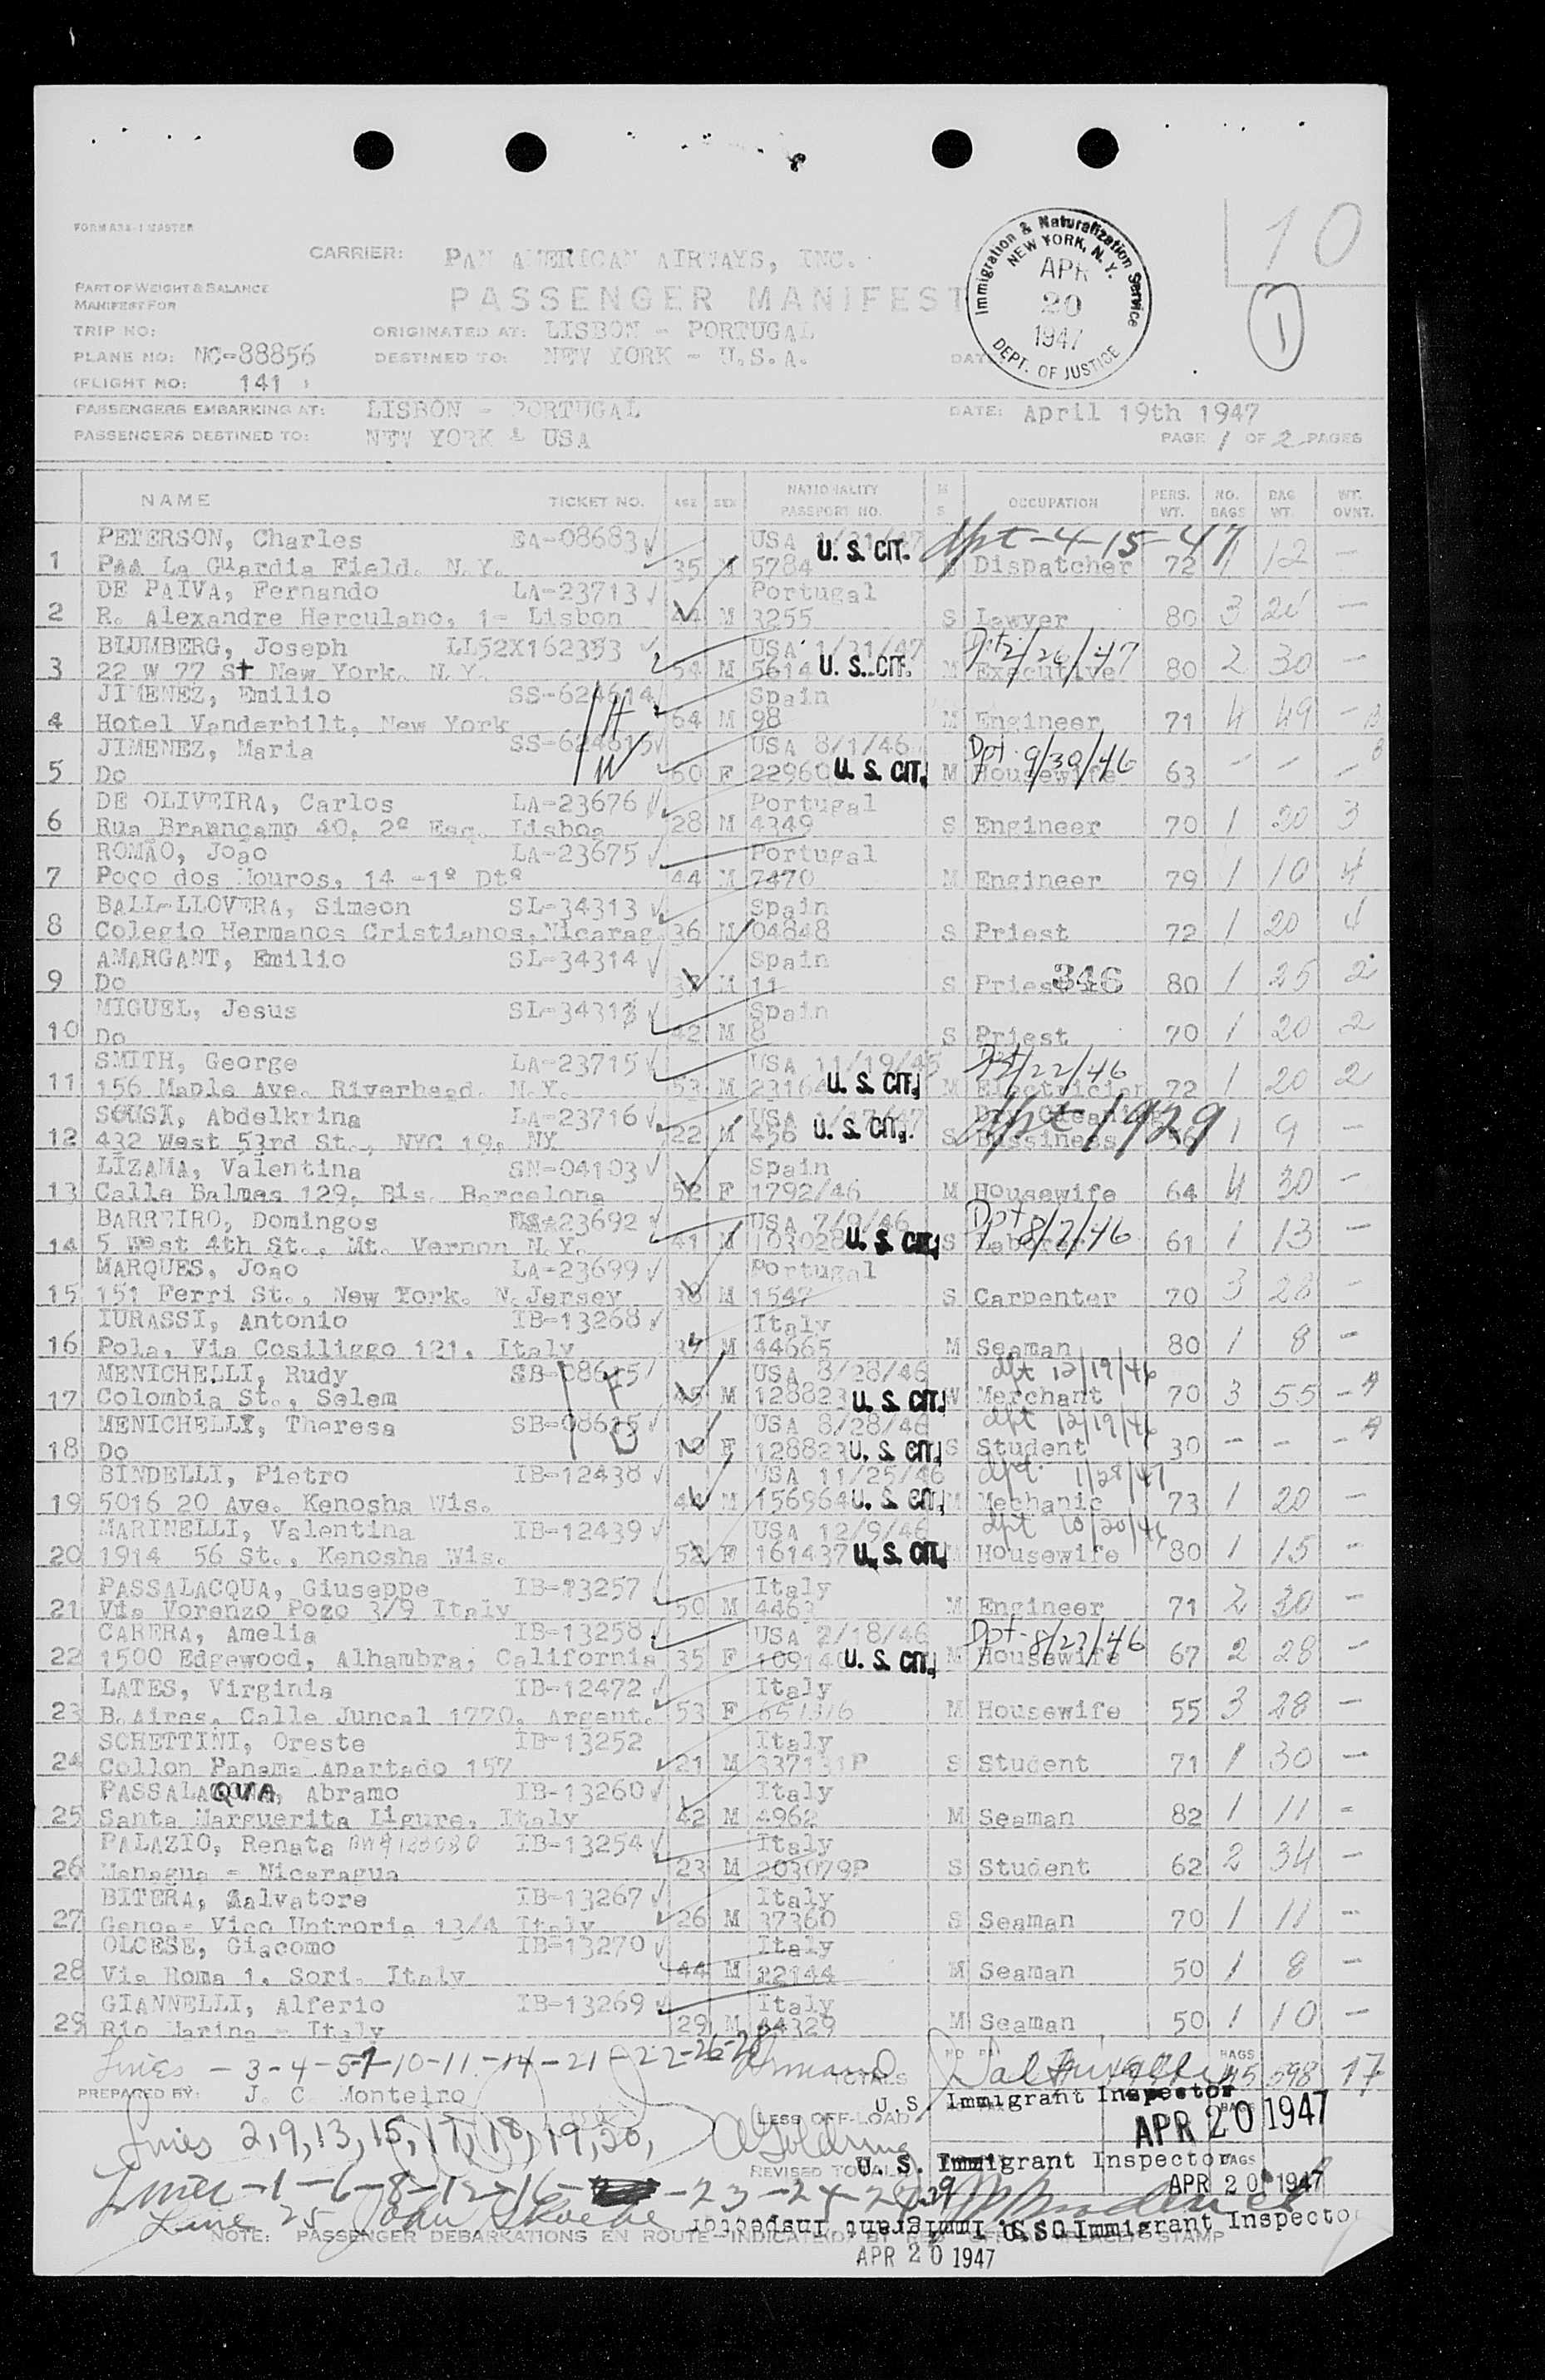 FORM ARA-1 MASTER
10
CARRIER: PAN AMERICAN AIRWAYS, INC.
Immigration & Naturalization Service
NEW YORK, N. Y.
APR
20
1947
DEPT. OF JUSTICE
PART OF WEIGHT & BALANCE
MANIFEST FOR
PASSENGER MANIFEST
1
TRIP NO: ORIGINATED AT: LISBON - PORTUGAL
PLANE NO: NC-88856 DESTINED TO: NEW YORK - U.S.A.
(FLIGHT NO: 141 )
PASSENGERS EMBARKING AT: LISBON - PORTUGAL DATE: April 19th 1947
PASSENGERS DESTINED TO: NEW YORK & USA PAGE 1 OF 2 PAGES
NAME TICKET NO. AGE SEX NATIONALITY PASSPORT NO. M S OCCUPATION PERS. WT. NO. BAGS BAG WT. WT. OVNT.
PETERSON, Charles EA-08683 USA 1/31/47 U. S. CIT. dpt-4-15-47
1 PAA La Guardia Field. N.Y. 35 M 5784 Dispatcher 72 1 12 -
DE PAIVA, Fernando LA-23713 Portugal
2 R. Alexandre Herculano, 1= Lisbon 44 M 3255 S Lawyer 80 3 -
BLUMBERG, Joseph LL52X162353 USA 1/31/47 Dpt 2/26/47
3 22 W 77 St New York. N.Y. 54 M 5614 U. S. CIT. M Executive 80 2 30 -
JIMENEZ, Emilio SS-624614 H Spain
4 Hotel Vanderbilt, New York 64 M 98 M Engineer 71 4 49 -
JIMENEZ, Maria SS-624615 W USA 8/1/46 Dpt 9/30/46
5 Do 60 F 22960 U. S. CIT. M Housewife 63 - - -
DE OLIVEIRA, Carlos LA-23676 Portugal
6 Rua Braancamp 40, 2º Esq. Lisboa 28 M 4349 S Engineer 70 1 30 3
ROMÃO, João LA-23675 Portugal
7 Poço dos Mouros, 14 -1º Dtº 44 M 7470 M Engineer 79 1 10 4
BALL-LLOVERA, Simeon SL-34313 Spain
8 Colegio Hermanos Cristianos, Nicarag 36 M 04848 S Priest 72 1 20 4
AMARGANT, Emilio SL-34314 Spain
9 Do M 11 S Priest 346 80 1 25 2
MIGUEL, Jesus Spain
10 Do 42 M 8 S Priest 70 1 20 2
SMITH, George LA-23715 USA 11/19/45
11 156 Maple Ave. Riverhead. N.Y. 53 M 23164 U. S. CIT. M Electrician 72 1 20 2
SOUSA, Abdelkrina LA-23716 USA 1/17/47 Dry Cleaning dpt 1929
12 432 West 53rd St., NYC 19, NY 22 M 456 U. S. CIT. S Bussiness 56 1 9 -
LIZAMA, Valentina SN-04103 Spain
13 Calle Balmes 129, Bis. Barcelona 52 F 1792/46 M Housewife 64 4 30 -
BARREIRO, Domingos 23692 USA 7/9/46 Dpt 8/7/46
14 5 West 4th St., Mt. Vernon N.Y. 41 M 103028 U. S. CIT. S Laborer 61 1 13 -
MARQUES, Joao LA-23699 Portugal
15 151 Ferri St., New York. N.Jersey 38 M 1547 S Carpenter 70 3 28 -
IURASSI, Antonio IB-13268 Italy
16 Pola, Via Cosiliggo 121, Italy 34 M 44665 M Seaman 80 1 8 -
MENICHELLI, Rudy SB-08615 F USA 8/28/46 dpt 12/19/46
17 Colombia St., Selem 45 M 128823 U. S. CIT. W Merchant 70 3 55 -
MENICHELLY, Theresa SB-08615 D USA 8/28/46 dpt 12/19/46
18 Do 10 F 128823 U. S. CIT. S Student 30 - - -
BINDELLI, Pietro IB-12438 USA 11/25/46 dpt 1/28/47
19 5016 20 Ave. Kenosha Wis. 44 M 156964 U. S. CIT. M Mechanic 73 1 20 -
MARINELLI, Valentina IB-12439 USA 12/9/46 dpt 10/20/46
20 1914 56 St., Kenosha Wis. 52 F 161437 U. S. CIT. M Housewife 80 1 15 -
PASSALACQUA, Giuseppe IB-13257 Italy
21 Via Vorenzo Pogo 3/9 Italy 50 M 4463 M Engineer 71 2 30 -
CARERA, Amelia IB-13258 USA 2/18/46 Dpt-8/27/46
22 1500 Edgewood, Alhambra, California 35 F 109140 U. S. CIT. M Housewife 67 2 28 -
LATES, Virginia IB-12472 Italy
23 B.Aires. Calle Juncal 1770, Argent. 53 F M Housewife 55 3 28 -
SCHETTINI, Oreste IB-13252 Italy
24 Collon Panama Apartado 157 21 M 337131P S Student 71 1 30 -
PASSALACQUA, Abramo IB-13260 Italy
25 Santa Marguerita Ligure, Italy 42 M 4962 M Seaman 82 1 11 -
PALAZIO, Renata IB-13254 Italy
26 Managua - Nicaragua 23 M 203079P S Student 62 2 34 -
BITERA, Salvatore IB-13267 Italy
27 Genoa- Vico Untroria 13/4 Italy 26 M 37360 S Seaman 70 1 11 -
OLCESE, Giacomo IB-13270 Italy
28 Via Roma 1, Sori. Italy 44 M 22144 M Seaman 50 1 8 -
GIANNELLI, Alferio IB-13269 Italy
29 Rio Marina - Italy 29 M 44329 M Seaman 50 1 10 -
Lines - 3-4-5-7-10-11-14-21-22-26-28 TOTALS BAGS 45 598 17
PREPARED BY: J. C. Monteiro U.S. Immigrant Inspector
LESS OFF-LOAD APR 20 1947
Lines 2,9,13,15,17,18,19,20,
REVISED TOTALS U. S. Immigrant Inspector BAGS
APR 20 1947
Lines-1-6-8-12-16- -23-24-27-29
Line 25 John
U.S. Immigrant Inspector
U. S. Immigrant Inspector
NOTE: PASSENGER DEBARKATIONS EN ROUTE INDICATED BY STAMP
APR 20 1947